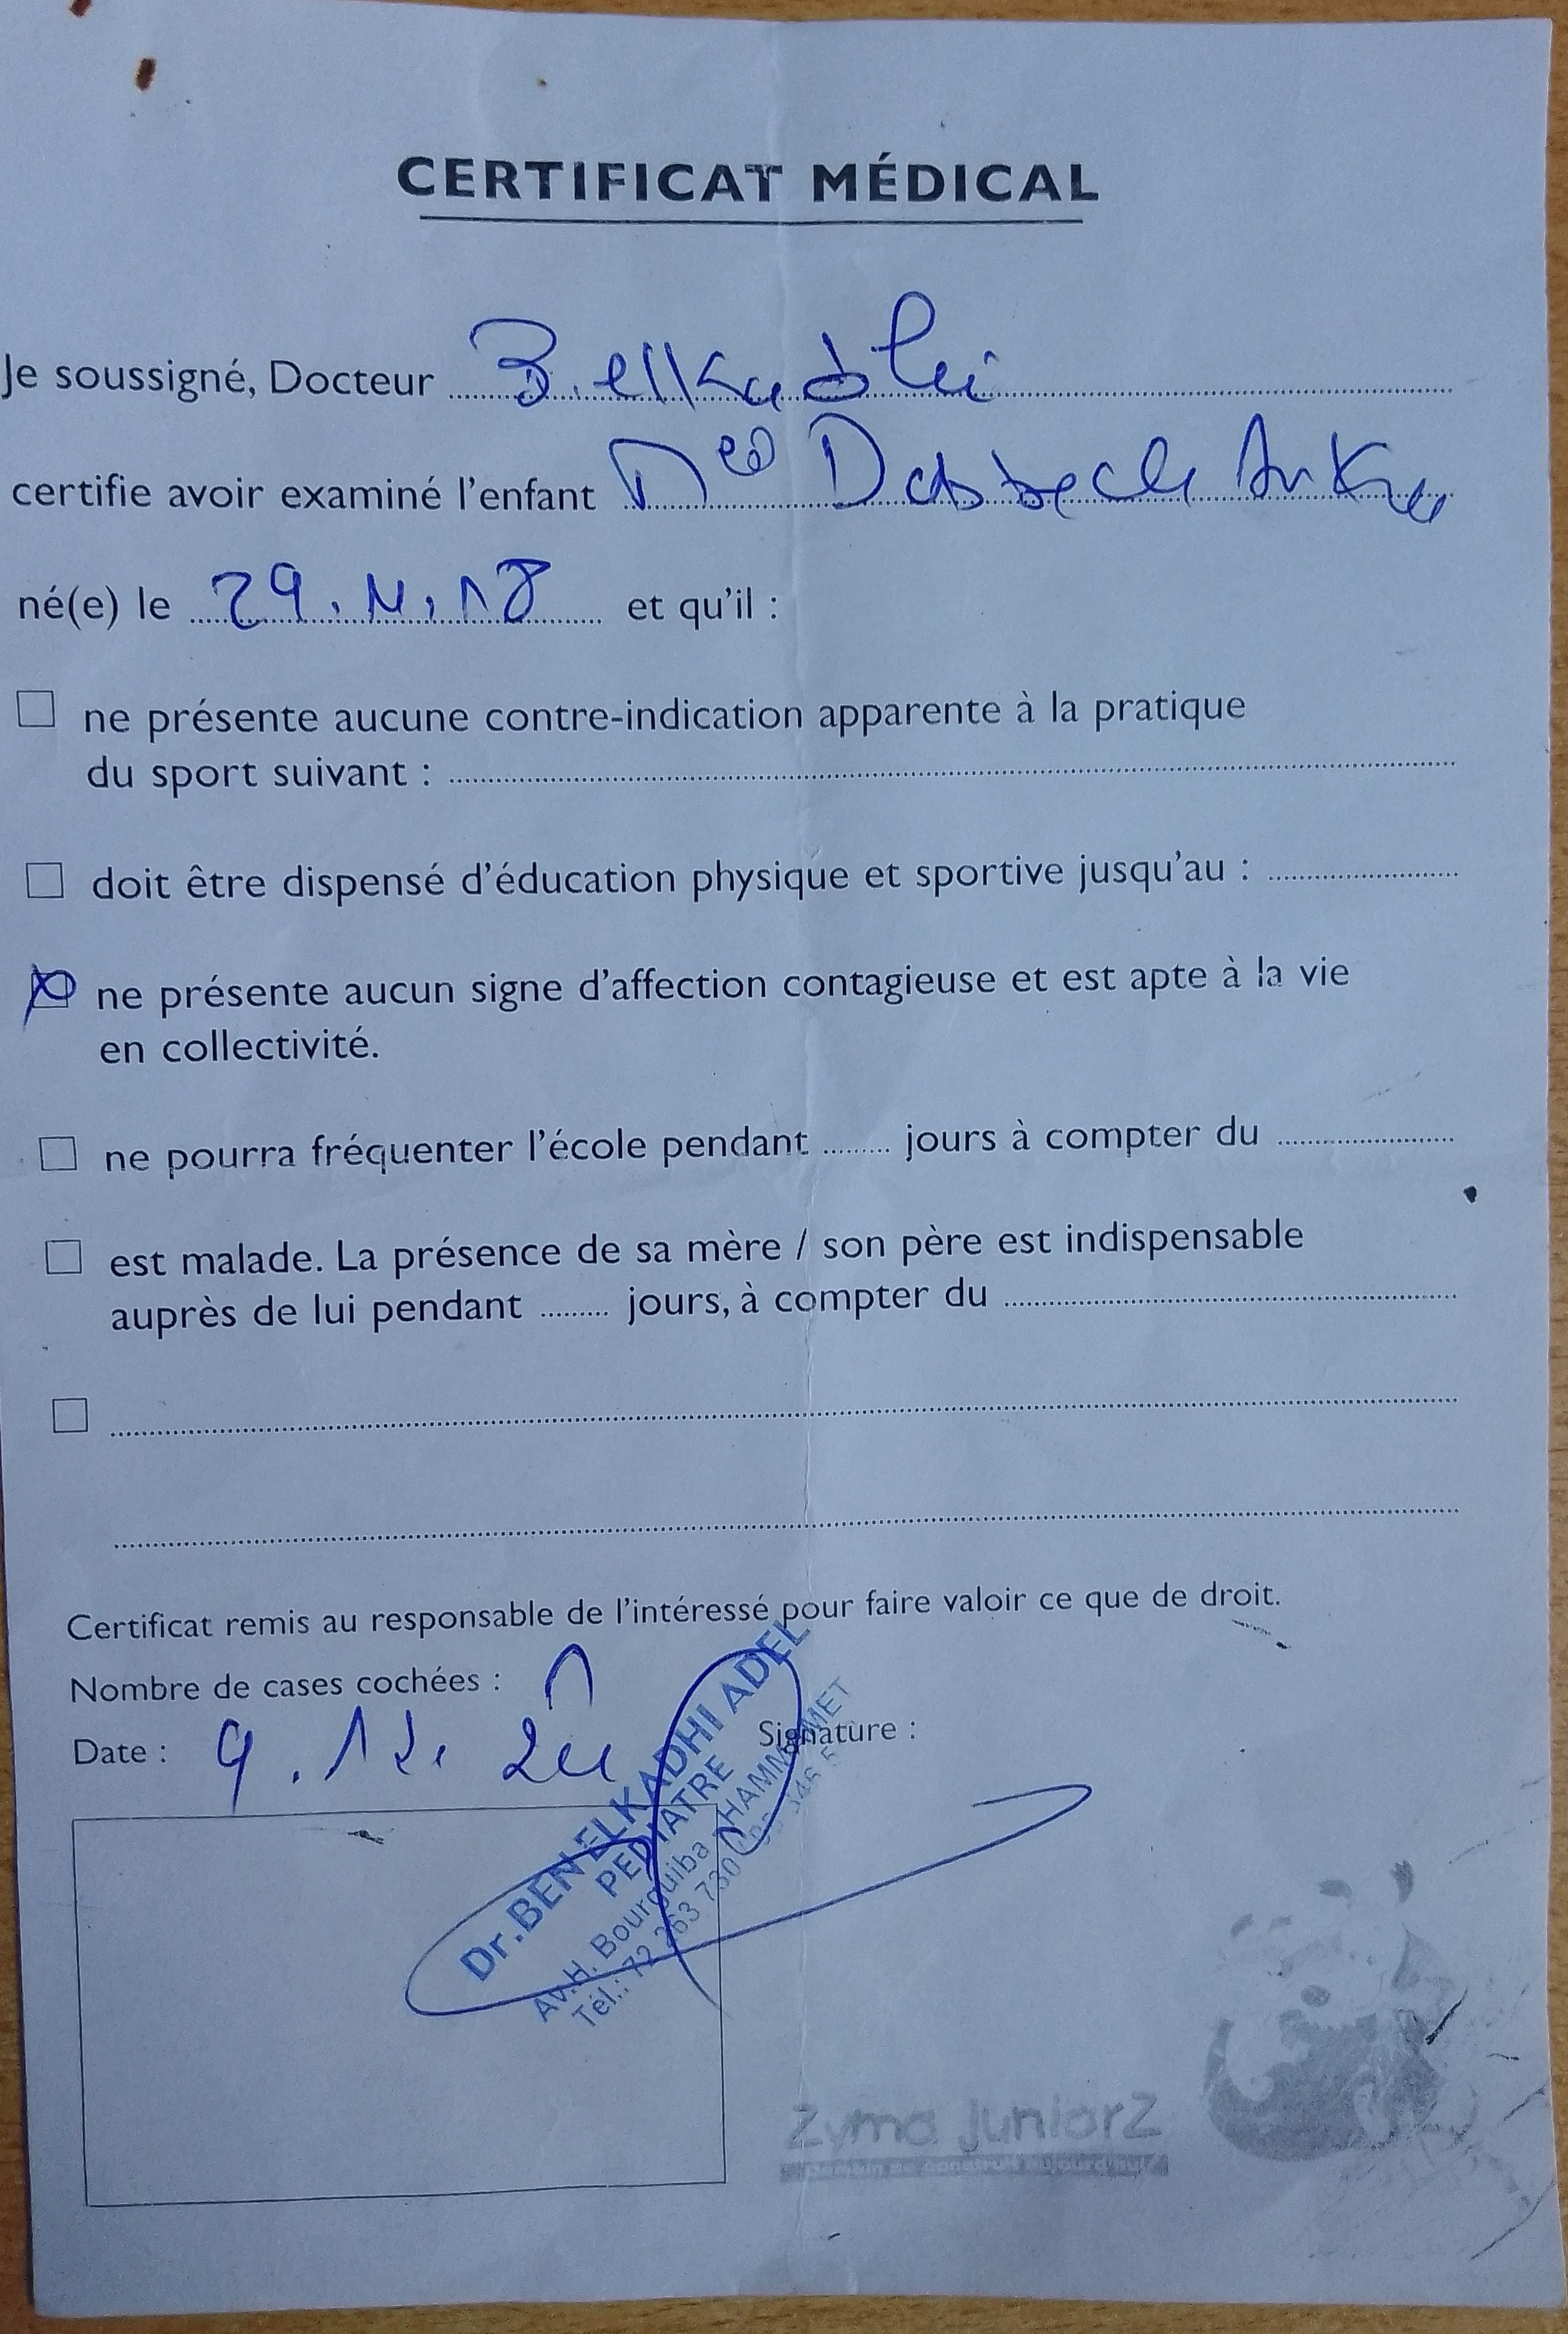 CERTIFICAT MÉDICAL
Je soussigné, Docteur B.elkadhi
certifie avoir examiné l'enfant
né(e) le 29.11.18 et qu'il :
ne présente aucune contre-indication apparente à la pratique
du sport suivant :
doit être dispensé d'éducation physique et sportive jusqu'au :
ne présente aucun signe d'affection contagieuse et est apte à la vie
en collectivité.
ne pourra fréquenter l'école pendant ........ jours à compter du
est malade. La présence de sa mère / son père est indispensable
auprès de lui pendant ........ jours, à compter du
Certificat remis au responsable de l'intéressé pour faire valoir ce que de droit.
Nombre de cases cochées : 1
Date : 9.12.
Signature :
Dr. BEN ELKADHI ADEL
PEDIATRE
Av.H. Bourguiba
Tél.: 72 263 730
Zyma JuniorZ
Demain se construit aujourd'hui